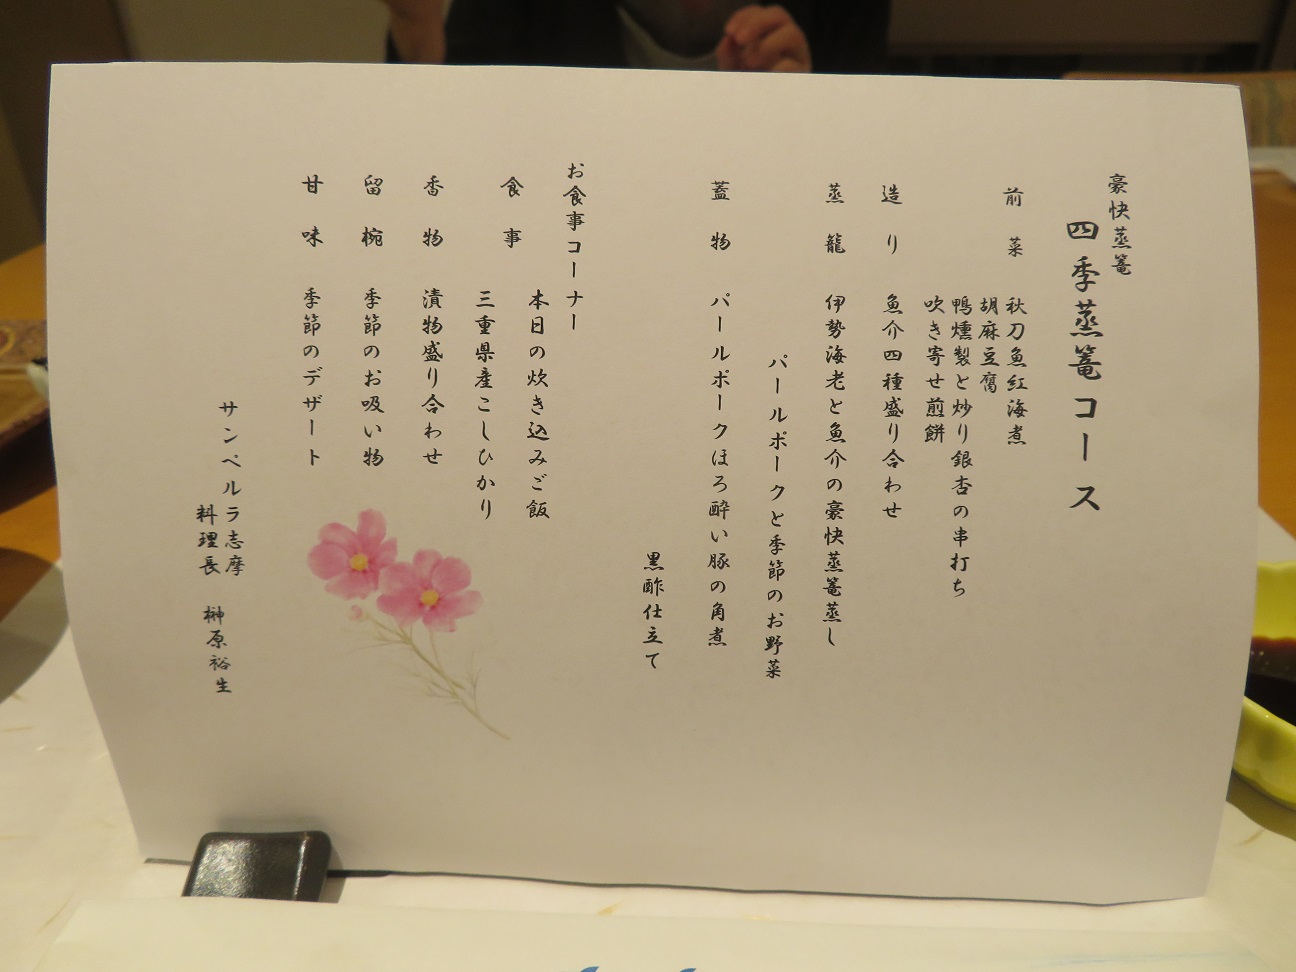 豪快蒸篭
四季蒸篭コース
前菜 秋刀魚紅海煮
胡麻豆腐
鴨燻製と炒り銀杏の串打ち
吹き寄せ煎餅
造り 魚介四種盛り合わせ
蒸籠 伊勢海老と魚介の豪快蒸篭蒸し
パールポークと季節のお野菜
蓋物 パールポークほろ酔い豚の角煮
黒酢仕立て
お食事コーナー
食事 本日の炊き込みご飯
三重県産こしひかり
香物 漬物盛り合わせ
留椀 季節のお吸い物
甘味 季節のデザート
サンペルラ志摩
料理長 榊原裕生